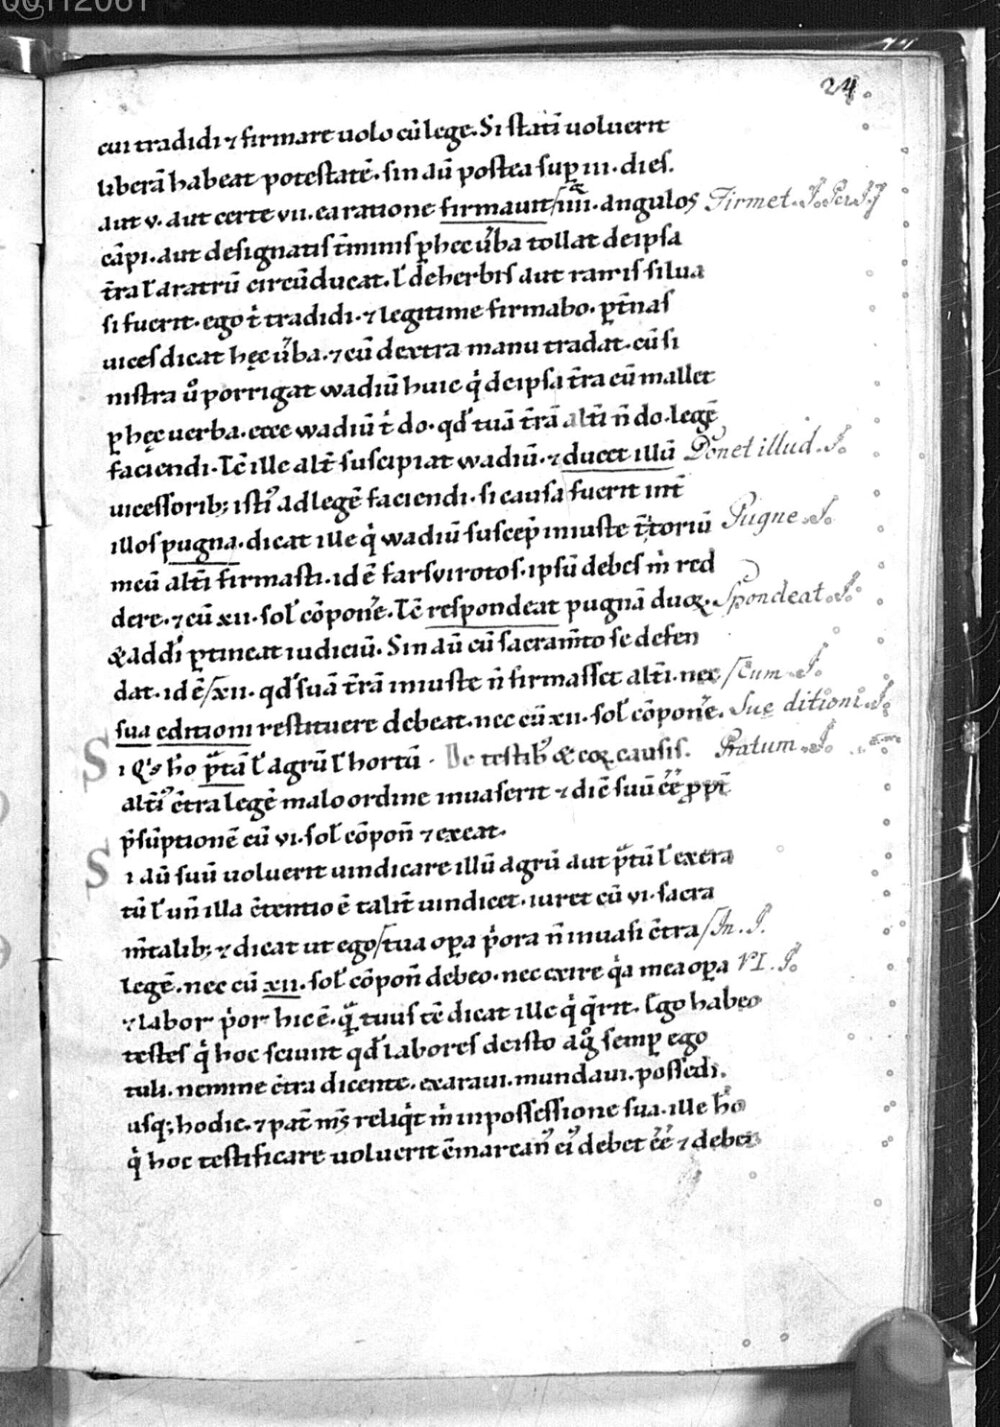 24
cui tradidi ⁊ firmare uolo cū lege. Si statī uoluerit
liberā habeat potestatē. sin aū postea sup̱ iii. dies.
aut v. aut certe vii. ea ratione firmauit / iiii. angulos Firmet. J.
cāpi. aut designatis t̄minis ꝑ hec ūba tollat de ipsa
t̄ra ł aratrū circūducat. ł de herbis aut ramis silua
si fuerit. ego t̄ tradidi. ⁊ legitime firmabo. ꝑ t̄nas
uices dicat hęc ūba. ⁊ cū dextra manu tradat. cū si
nistra ů porrigat wadiū huic q̇ de ipsa t̄ra eū mallet
ꝑ hęc uerba. ecce wadiū t̄ do. qd̄ tuā t̄rā alt̄i n̄ do. legē
faciendi. Tc̄ ille alt̄ suscipiat wadiū. ⁊ ducet illū Donet illud. J.
uicessorib; istī ad legē faciendi. si causa fuerit int̄
illos pugna. dicat ille q̇ wadiū suscep̄ iniuste t̄ritoriū Pugne. J.
meū alt̄i firmasti. id ē farsuirotos. ipsū debes m̄ red
dere. ⁊ cū xii. sol̄ cōpon̄e. Tc̄ respondeat pugnā duoꝝ. Spondeat. J.
& ad dī ꝑtineat iudiciū. Sin aū cū sacram̄to se defen
dat. id ē / xii. qd̄ suā t̄rā iniuste n̄ firmasset alt̄i. nec / Cum J.
sua editioni restituere debeat. nec cū xii. sol̄ cōpon̄e. Sue ditioni. J.
Si q̇s hō p̄tā ł agrū ł hortū. De testib; & eoꝝ causis. Pratum. J.
alt̄i c̄tra legē malo ordine inuaserit ⁊ dic̄ suū ēē ꝓpt̄
p̄sūptionē cū vi. sol̄ cōpon̄ ⁊ exeat.
Si aū suū uoluerit uindicare illū agrū aut p̄tū ł exera
tū ł un̄ illa c̄tentio ē talit̄ uindicet. iuret cū vi. sacra
m̄talib; ⁊ dicat ut ego / tua oꝑa p̄ora n̄ inuasi c̄tra / In. J.
legē. nec cū xii. sol̄ cōpon̄ debeo. nec exire q̇a mea oꝑa VI. J.
⁊ labor p̄or hic ē. q̄ tuus tc̄ dicat ille q̇ q̄rit. Ego habeo
testes q̇ hoc sciunt qd̄ labores de isto ag̊ semꝑ ego
tuli. nemine c̄tra dicente. exaraui. mundaui. possedi.
usq; hodie. ⁊ pat̄ m̄s reliq̇t m̄ in possessione sua. ille hō
q̇ hoc testificare uoluerit c̄marcan̄ ei̓ debet ēē ⁊ debet